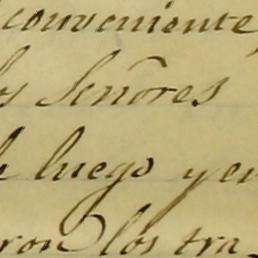 conveniente,
os Señores
luego y en
ron los tra-